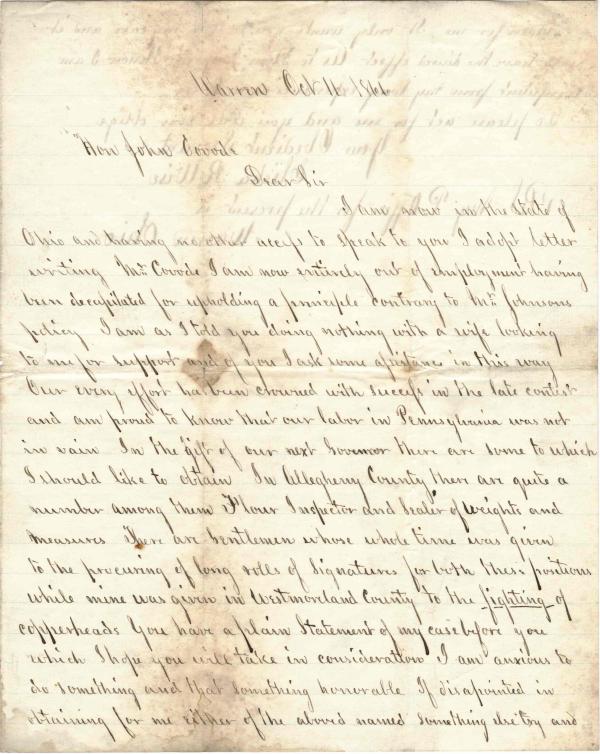 Warren Oct 11 1866
Hon John Covode
Dear Sir
I am now in the State of
Ohio and having no other access to speak to you I adopt letter
writing Mr Covode I am now entirely out of employment having
been decapitated for upholding a principle contrary to Mr Johnsons
policy I am as I told you doing nothing with a wife looking
to me for support and of you I ask some assistance in this way
Our every effort has been crowned with success in the late contest
and am proud to know that our labor in Pennsylvania was not
in vain In the gift of our next Governor there are some to which
I should like to obtain In Allegheny County there are quite a
number among them Flour Inspector and Sealer of weights and
measures There are Gentlemen whose whole time was given
to the procuring of long roles of Signatures for both these positions
while mine was given in Westmoreland County to the fighting of
copperheads You have a plain Statement of my case before you
which I hope you will take in consideration I am anxious to
do something and that something honorable If disapointed in
obtaining for me either of the aboved named something else try and